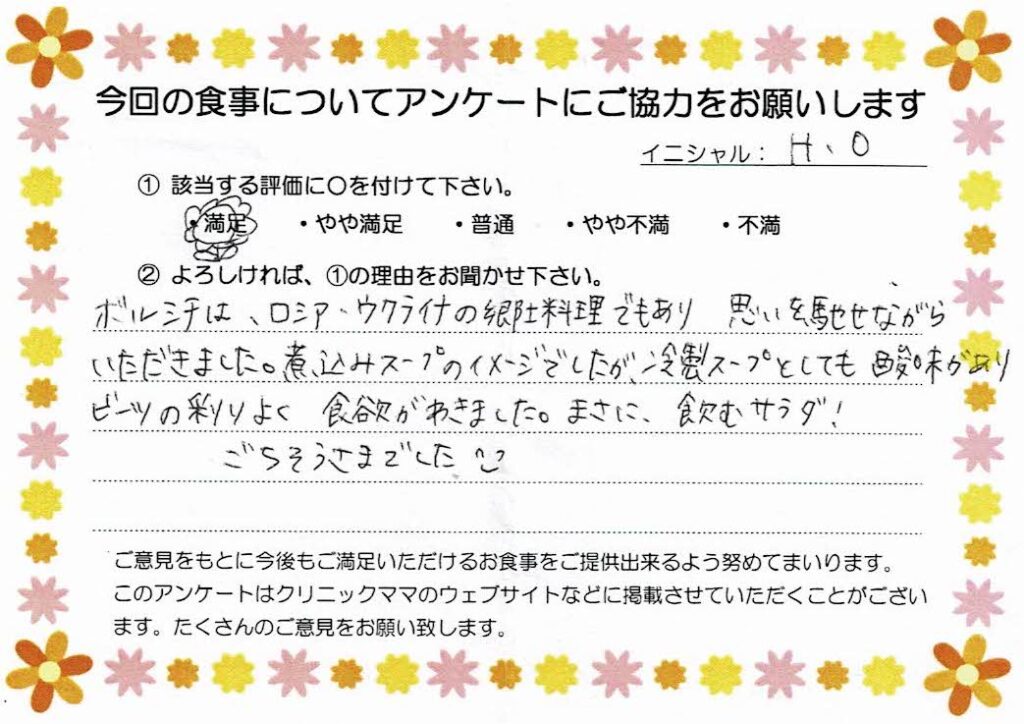 今回の食事についてアンケートにご協力をお願いします
イニシャル: H、O
① 該当する評価に〇を付けて下さい。
・満足 ・やや満足 ・普通 ・やや不満 ・不満
② よろしければ、①の理由をお聞かせ下さい。
ボルシチは、ロシア・ウクライナの郷土料理でもあり 思いを馳せながら
いただきました。煮込みスープのイメージでしたが、冷製スープとしても 酸味があり
ビーツの彩りよく 食欲がわきました。まさに、飲むサラダ!
ごちそうさまでした
ご意見をもとに今後もご満足いただけるお食事をご提供出来るよう努めてまいります。
このアンケートはクリニックママのウェブサイトなどに掲載させていただくことがござい
ます。たくさんのご意見をお願い致します。